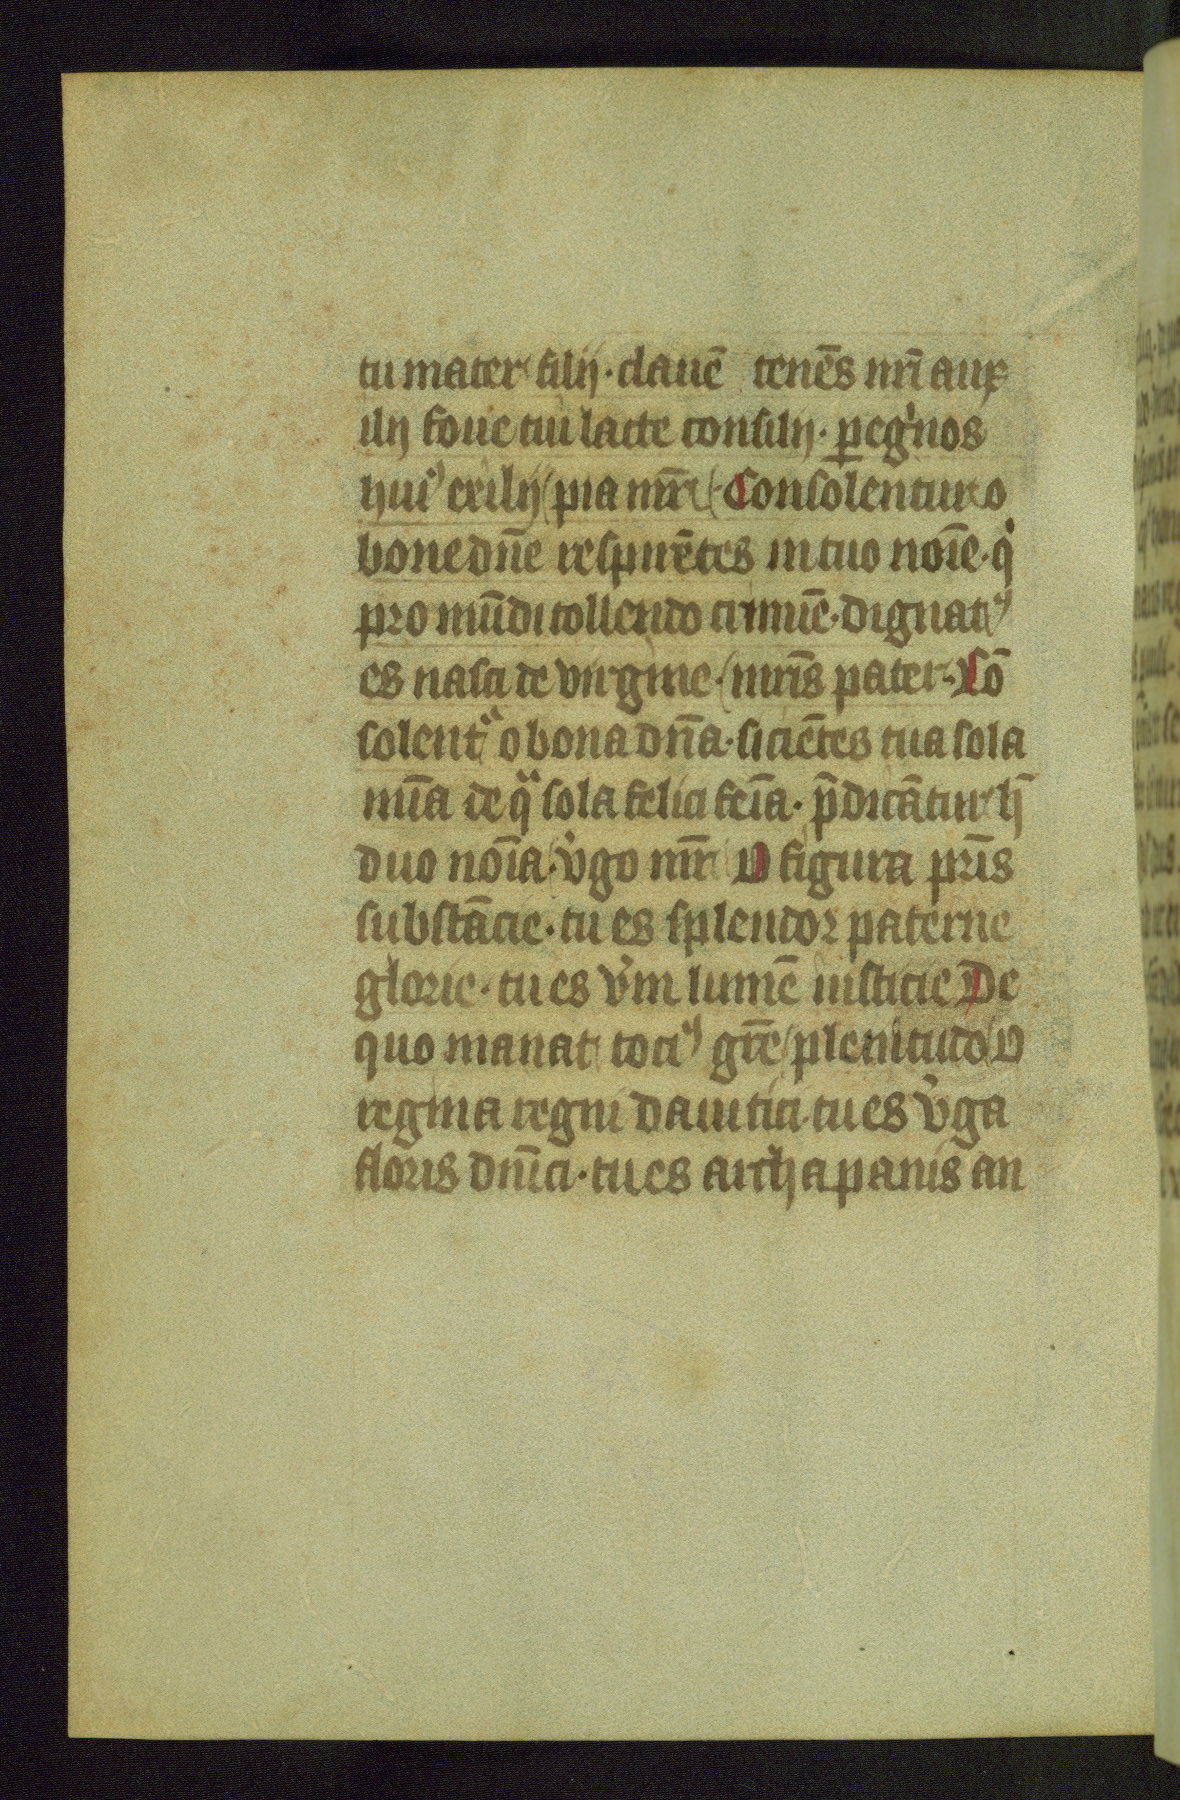 tu mater filij · clauē tenēs nrī aux
ilij foue tui lacte consilij · ꝑegͥnos
huiꝰ exilij pia mr̄ · Consolentur o
bone dn̄e respirētes in tuo noīe · qͥ
pro mūdi tollendo crimīe · dignatꝰ
es nasci de virgine · mr̄is pater · Cō
solentᷓ o bona dn̄a · siciētes tua sola
mīa de qᷓ sola felici feīa · p̄dicātur h̄
duo noīa · v̓go mr̄ O figura pr̄is
substācie · tu es splendor paterne
glorie · tu es v̓m lumē iusticie De
quo manat tociꝰ gr̄e plenitudo O
regina regni dauitici · tu es v̓ga
floris dn̄ici · tu es archa panis an